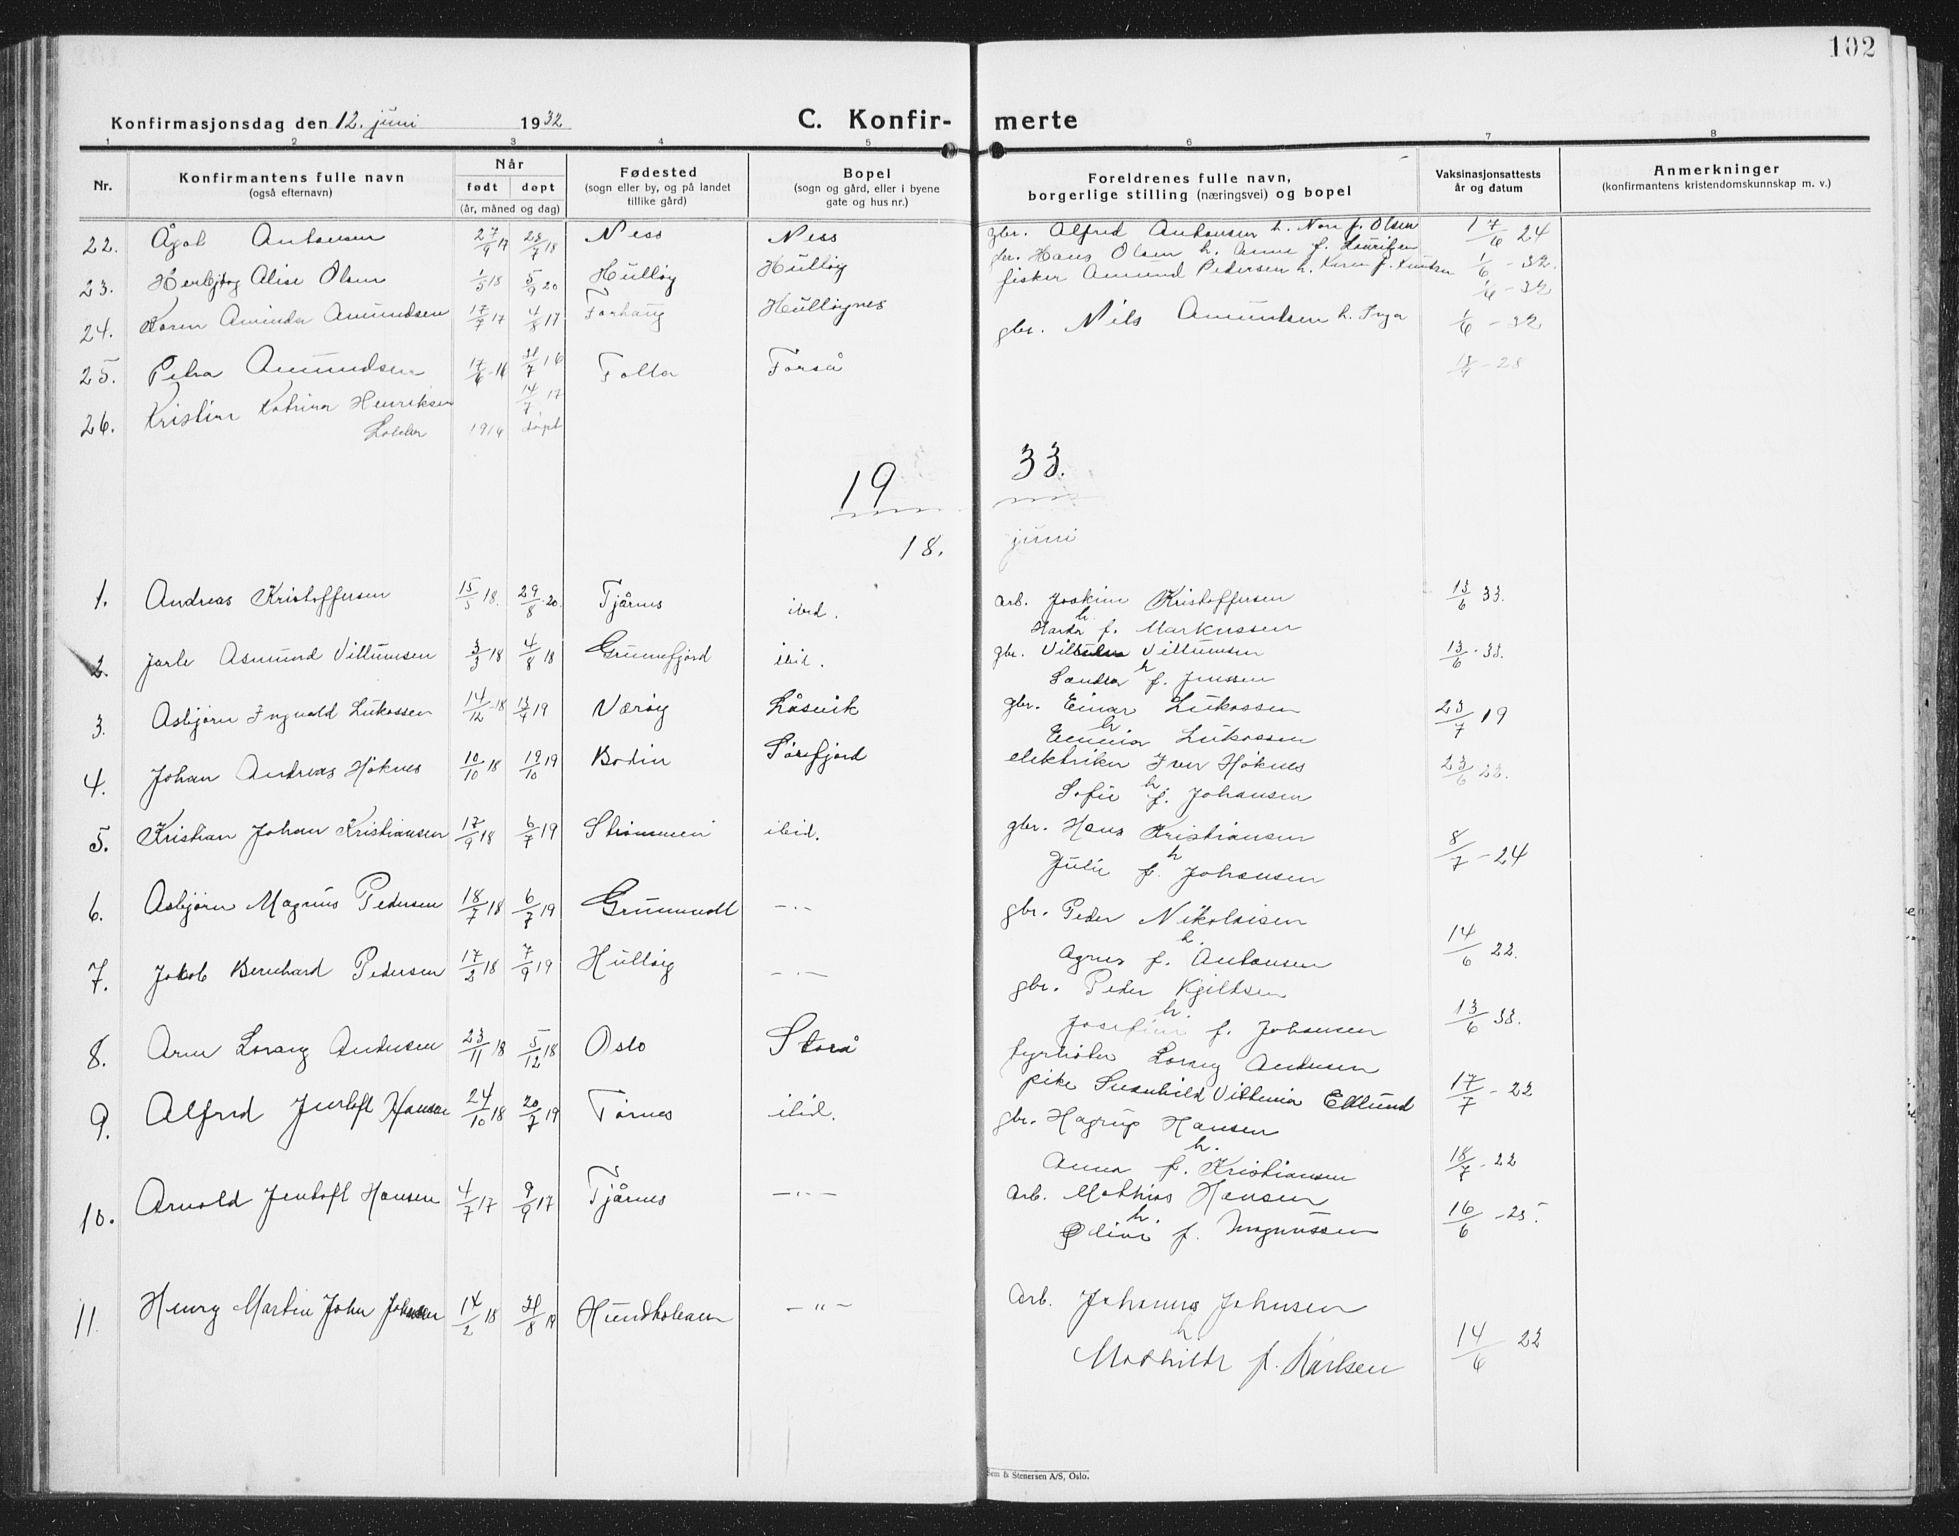 102
Konfirmasjonsdag den 12. juni 1932
C. Konfirmerte
1 2 3 4 5 6 7 8
Nr.
Konfirmantens fulle navn
(også efternavn)
Når
født døpt
(år, måned og dag)
Fødested
(sogn eller by, og på landet
tillike gård)
Bopel
(sogn og gård, eller i byene
gate og hus nr.)
Foreldrenes fulle navn,
borgerlige stilling (næringsvei) og bopel
Vaksinasjonsattests
år og datum
Anmerkninger
(konfirmantens kristendomskunnskap m. v.)
22. Ågot Antonsen 27/9 17 Ness Ness gbr. Alfred Antonsen h. f. Olsen 17/6 24
23. Herbjørg Alise Olsen 1/5 18 5/9 20 Hulløy Hulløy gbr. Hans Olsen h. Anna f. 1/6 - 32.
24. Karen Aminda Amundsen 17/7 17 4/8 17 Forhaug Hulløynes fisker Amund Pedersen h. Karen f. Knutsen 1/6 - 32
25. Petra Amundsen 17/6 - 16 31/7 16 Folla Forså gbr. Nils Amundsen h. Inga 1/6 - 32
26. Kristine Katrine Henriksen 14/7 17
1914 døpt
19 33.
18. juni
1. Andreas Kristoffersen 15/5 18. 29/8 20. Tjårnes ibid. arb. Joakim Kristoffersen 13/6 33.
h.
f. Markussen
2. Jarle Asmund Villumsen 3/3 18 4/8 18 Grunnfjord ibid. gbr. Villumsen 13/6 - 33.
h
Sandra f. Jenssen
3. Asbjørn Ingvald Lukassen 14/12 - 18 13/4 19 Værøy Låsvik gbr. Einar Lukassen 23/7 19
h
Emmia Lukassen
4. Johan Andreas Høknes 10/10 18 19/10 19 Bodin Sørfjord elektriker Iver Høknes 23/6 22.
h
Sofie f. Johansen
5. Kristian Johan Kristiansen 17/9 18 6/7 19 Strømmen ibid. gbr. Hans Kristiansen 8/7 - 24
h
Julie f. Johansen
6. Asbjørn Magnus Pedersen 18/7 18 6/7 19 Grunnvoll -.- gbr. Peder Nikolaisen 14/6 22.
h.
Agnes f. Antonsen
7. Jakob Bernhard Pedersen 17/2 18 7/9 19 Hulløy -.- gbr. Peder Kjeldsen 13/6 33.
h.
Josefine f. Johansen
8. Arne Andersen 23/11 18 5/12 18 Oslo Storå fyrbøter Andersen 17/7 - 22
pike Svanhild Vilhemia Edlund
9. Alfred Jentoft Hansen 24/10 18 20/7 19 Tørnes ibid. gbr. Hagrup Hansen 18/7 - 22
h.
Anna f. Kristiansen
10. Arnold Jentoft Hansen 4/7 17 9/9 17 Tjårnes -..- arb. Mathias Hansen 16/6 - 25.
h.
f. Magnussen
11. Henry Martin John Johnsen 14/2 18 31/8 19 Hundholmen - " - arb. Johannes Johnsen 14/6 22
h
Mathilde f. Karlsen
& Stenersen A/S, Oslo.